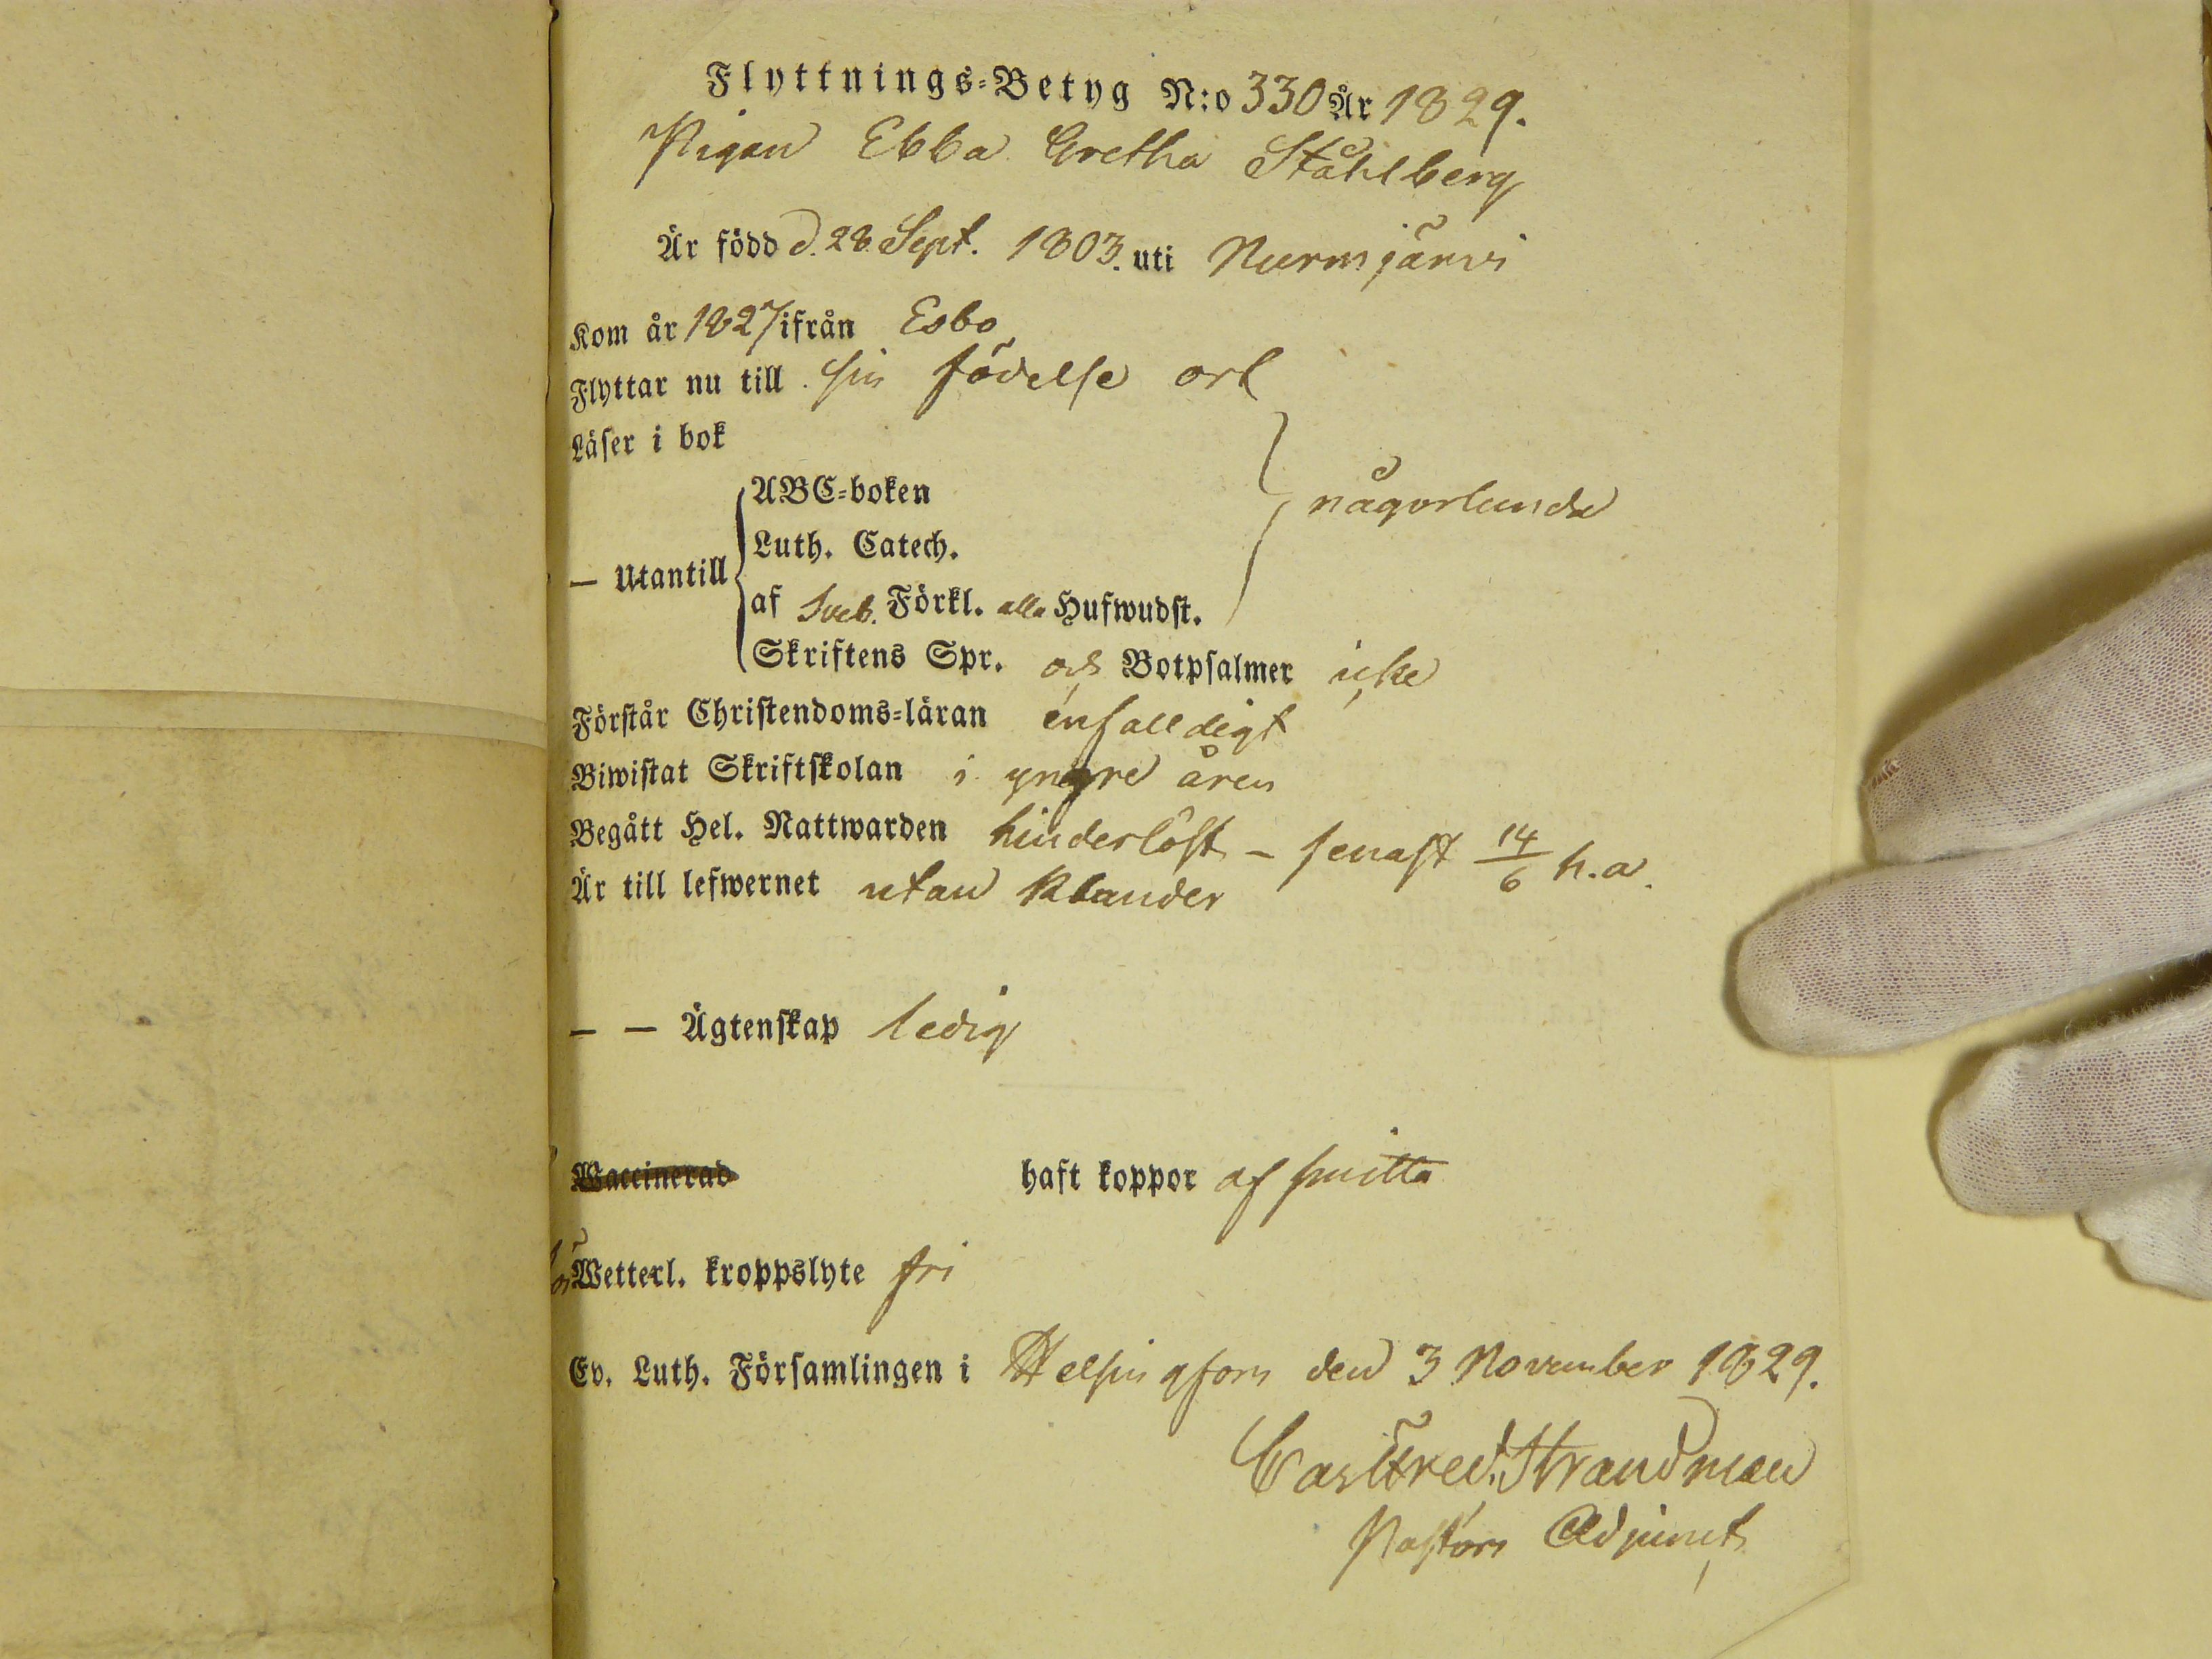 Flyttnings-Betyg N:o 330 År 1829.
Pigan Ebba Gretha Ståhlberg
Är född d. 28 Sept. 1803. uti Nurmijärvi
Kom år 1827 ifrån Esbo
Flyttar nu till sin födelse ort
Läser i bok
ABC-boken
någorlunda
Luth. Catech.
— Utantill
af Sveb. Förkl. alla Hufwudst.
Skriftens Spr. och Botpsalmer icke
Förstår Christendoms-läran enfalldigt
Biwistat Skriftskolan i yngre åren
Begått Hel. Nattwarden hinderlöst – senast 14/6 h.a.
Är till lefwernet utan klander
— — Ägtenskap ledig
Waccinerad haft koppor af smitta
för Wetterl. kroppslyte fri
Ev. Luth. Församlingen i Helsingfors den 3 November 1829.
Carl Fred. Strandman
Pastors Adjunct